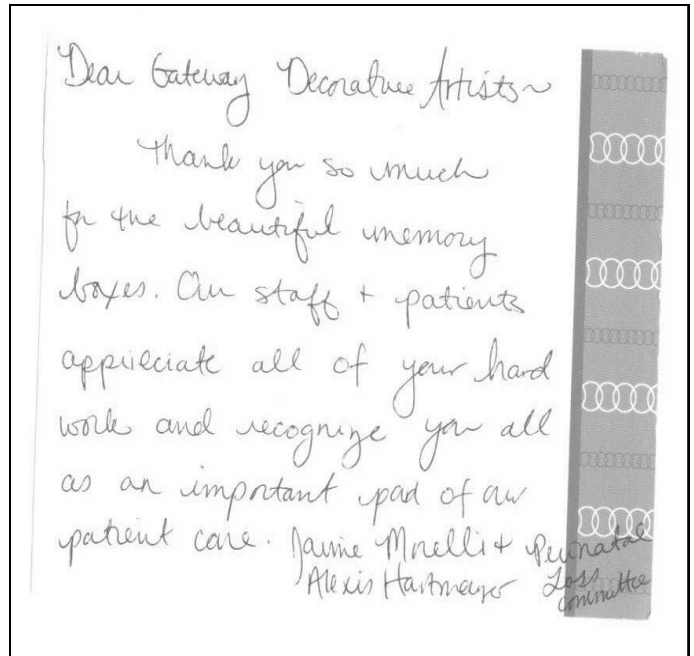 Dear Gateway Decorative Artists~
Thank you so much
for the beautiful memory
boxes. Our staff + patients
appreciate all of your hard
work and recognize you all
as an important part of our
patient care. Jaime Morelli + Perinatal
Alexis Hartmeyer Loss
committee